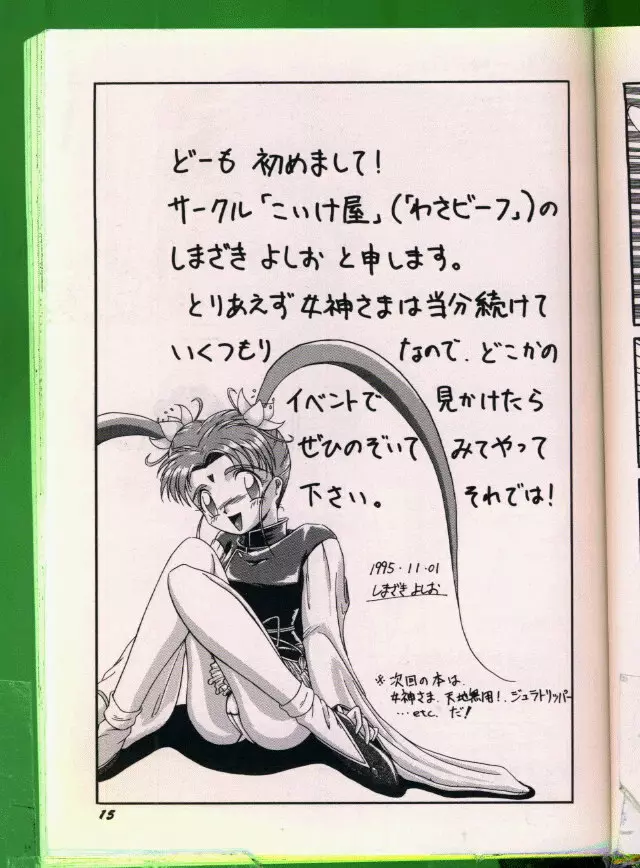 どーも 初めまして!
サークル「こいけ屋」(「わさビーフ」)の
しまざき よしお と申します。
とりあえず 女神さまは当分続けて
いくつもり なので、どこかの
イベントで 見かけたら
ぜひのぞいて みてやって
下さい。 それでは!
1995・11・01
しまざき よしお
※次回の本は、
女神さま、天地無用!、ジュラトリッパー
…etc. だ!
15